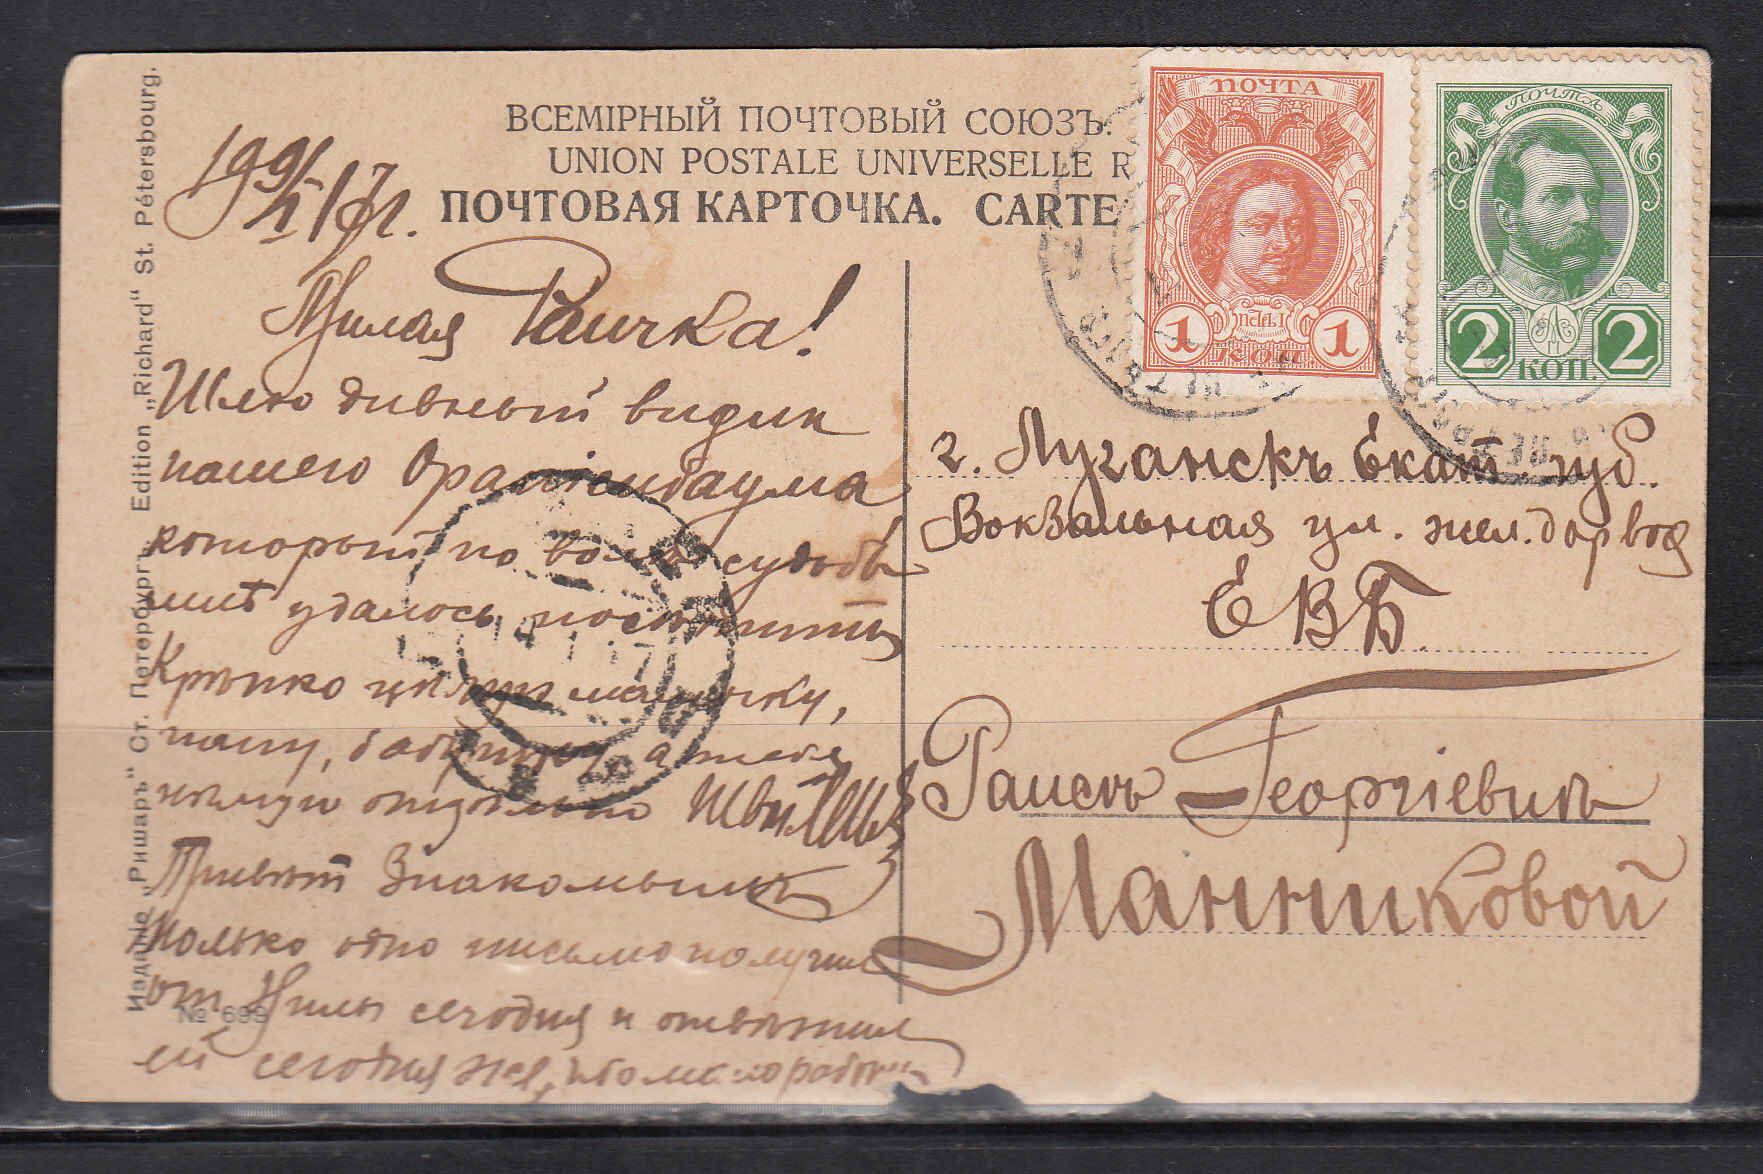 ВСЕМІРНЫЙ ПОЧТОВЫЙ СОЮЗЪ.
UNION POSTALE UNIVERSELLE R
ПОЧТОВАЯ КАРТОЧКА. CARTE
ПОЧТА
1 КОП. 1
ПОЧТА
2 КОП. 2
Милая Раичка!
Шлю дивный видик
нашего Ораніенбаума
который по волѣ судьбы
мнѣ удалось посѣтить
Крѣпко цѣлую мамочку,
папу, бабушку, а тебя
цѣлую отдѣльно
Привѣт Знакомымъ
Только одно письмо получил
от Нилы сегодня и отвѣтил
ей сегодня же,
г. Луганскъ Екат. губ.
Вокзальная ул. жел. дор
ЕВБ
Раисѣ Георгіевнѣ
Манниковой
Изданіе „Ришаръ" Ст. Петербургъ. Edition „Richard" St. Pétersbourg.
№ 699